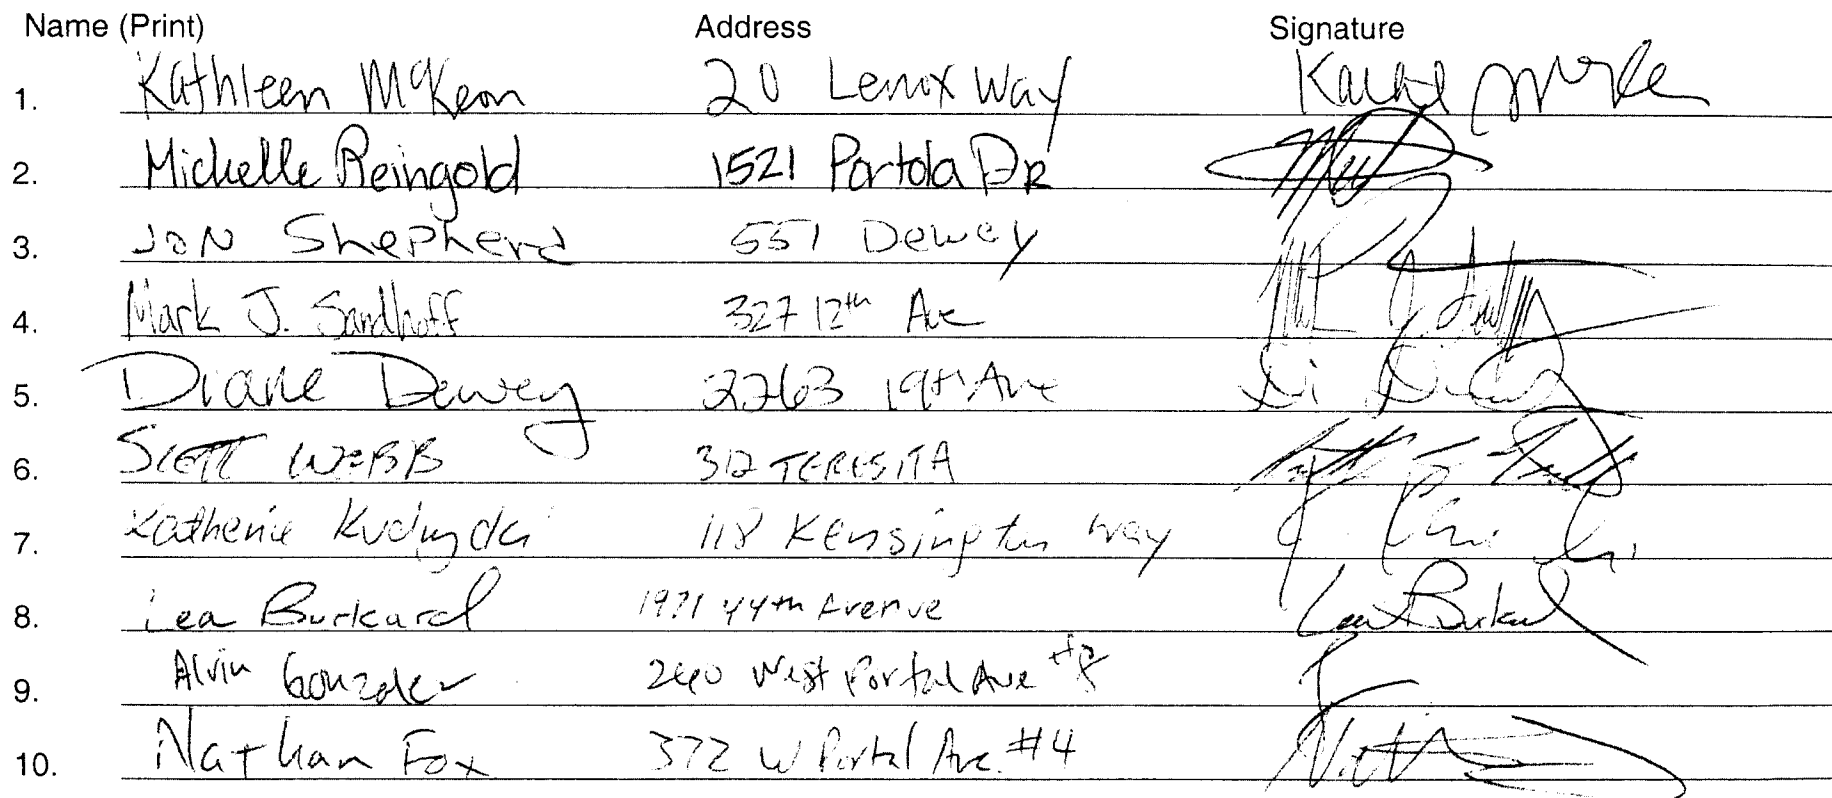 Name (Print) Address Signature
1. Kathleen McKeon 20 Lenox Way
2. Michelle Reingold 1521 Portola DR
3. Jon Shepherd 551 Dewey
4. Mark J. Sandhoff 327 12th Ave
5. Diane Dewey 2263 19th Ave
6. Scott WEBB 312 TERESITA
7. Katherine 118 Kensington Way
8. Lea Burkard 1971 44th Avenue Lea Burkard
9. Alvin Gonzalez 240 West Portal Ave #8
10. Nathan Fox 372 W Portal Ave. #4